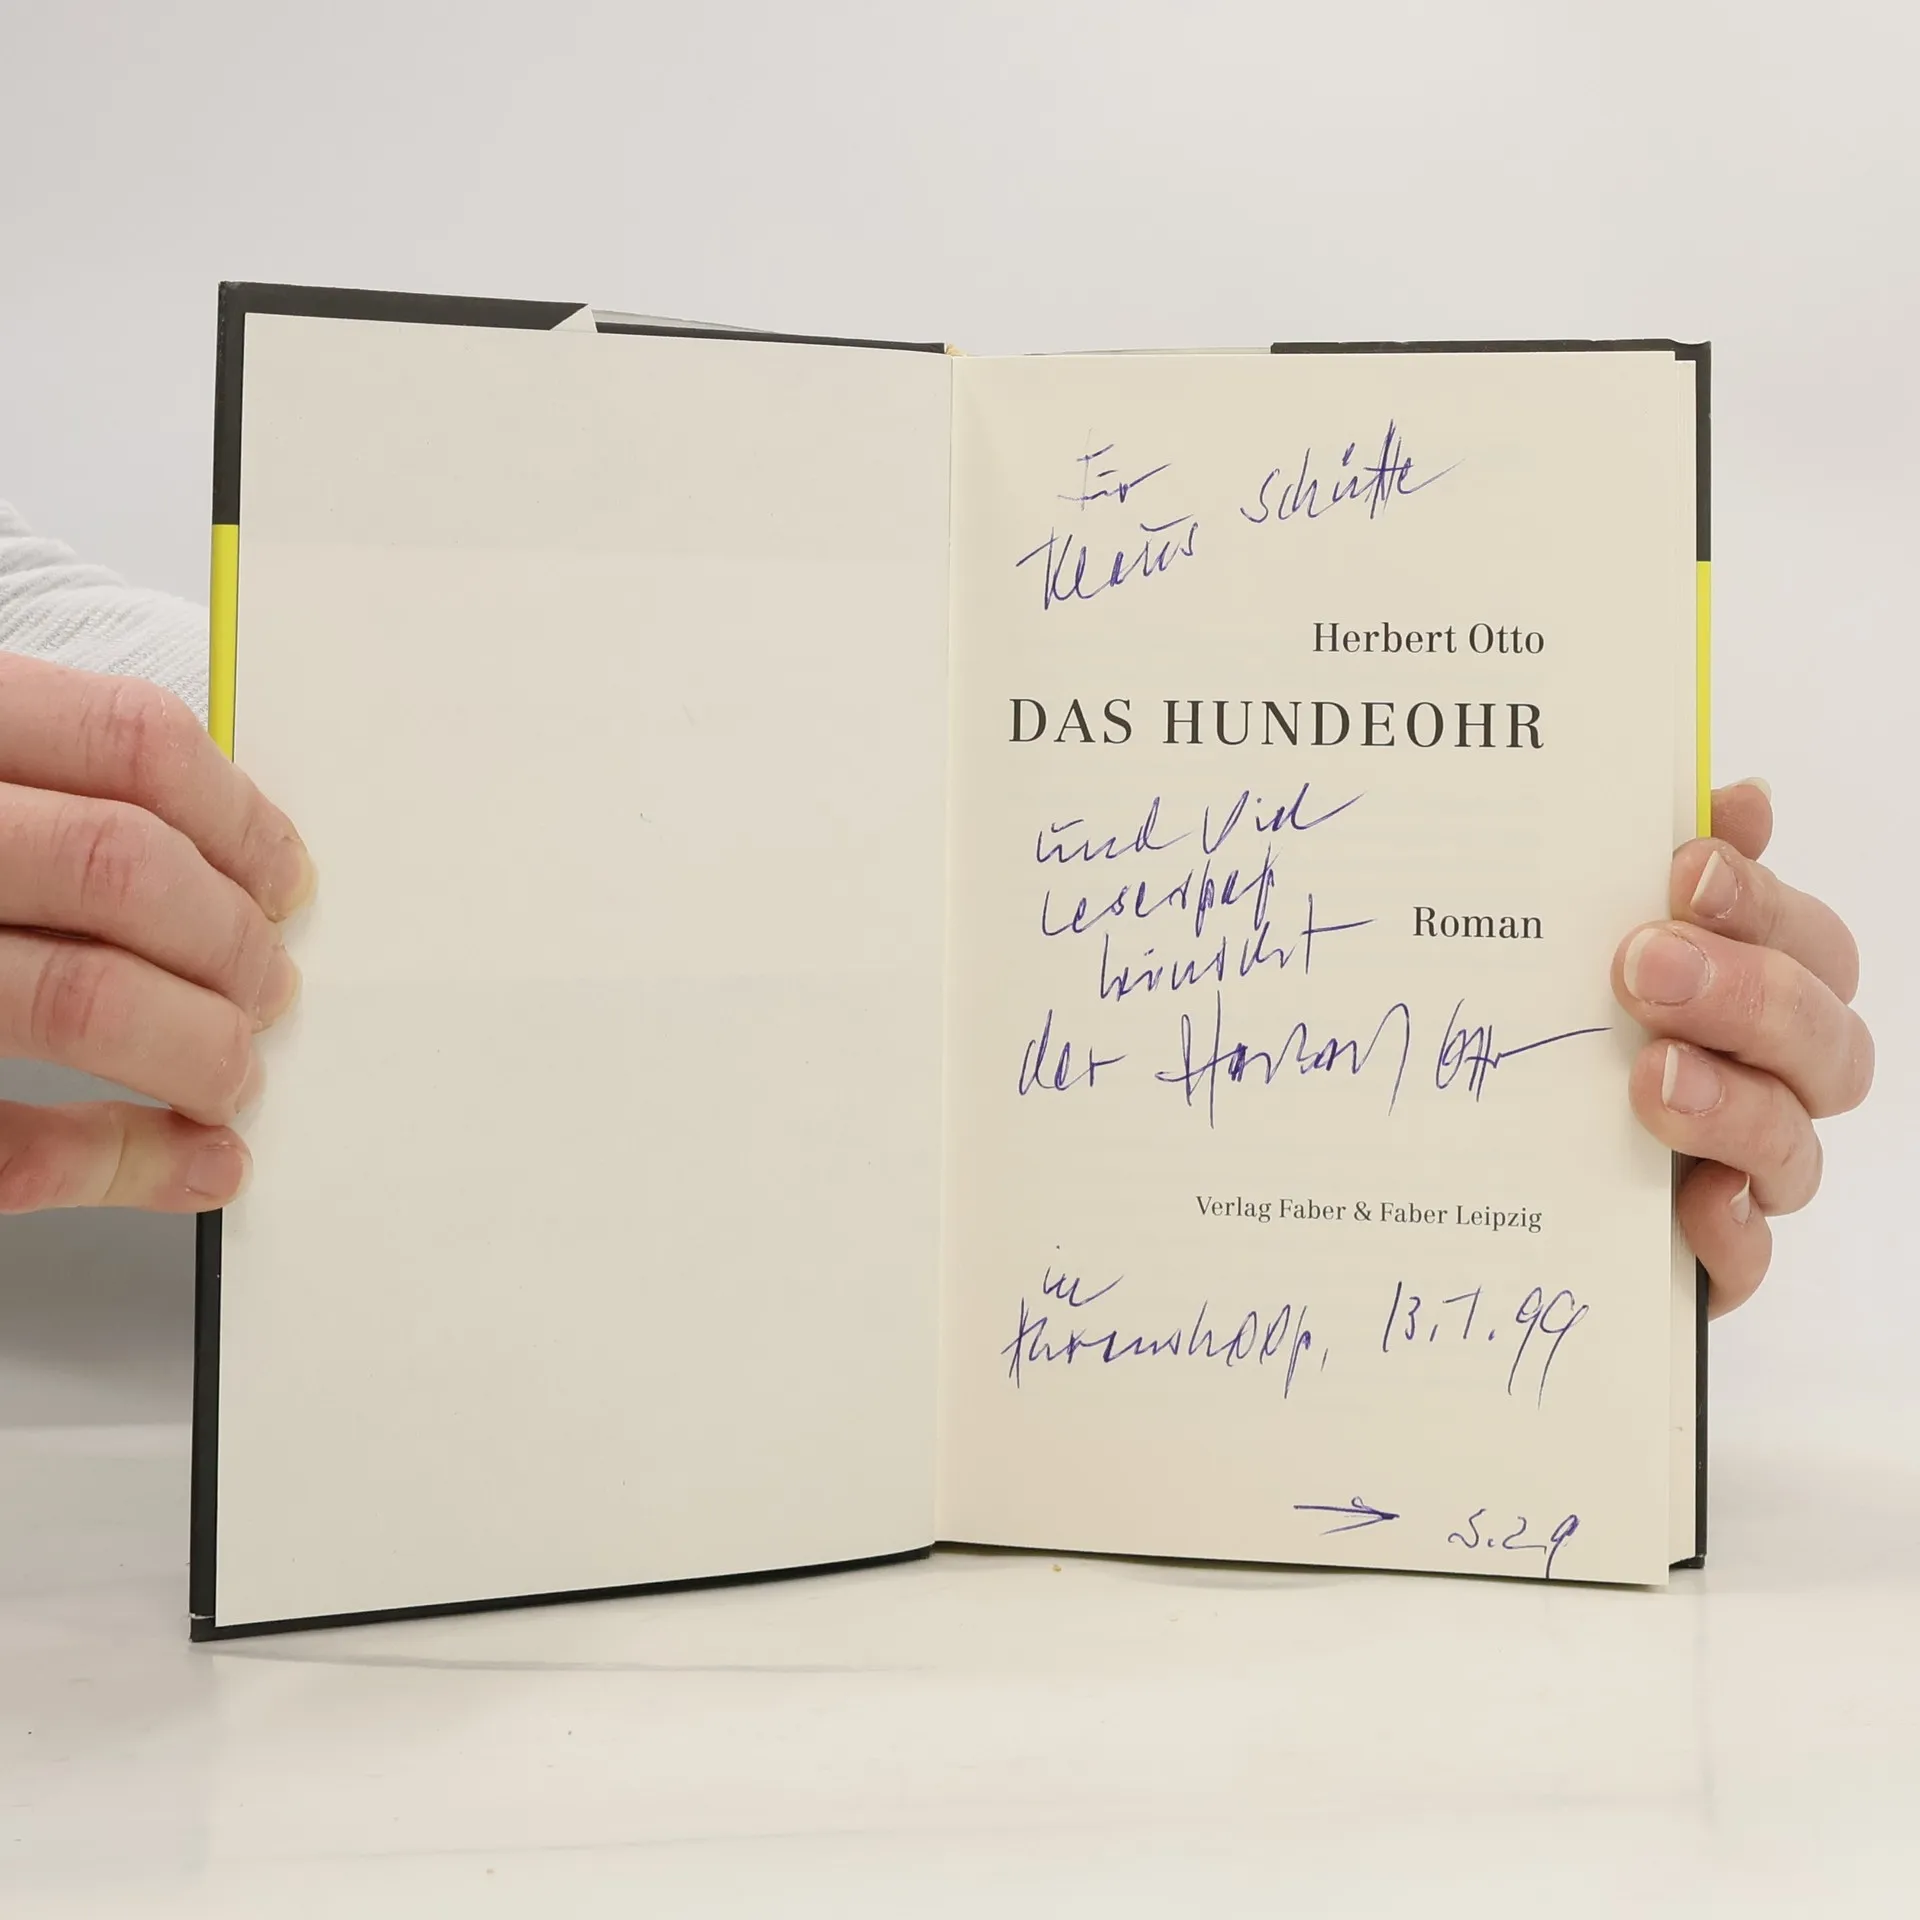 Für
Klaus Schütte
Herbert Otto
DAS HUNDEOHR
und viel
Lesespaß
wünscht
Roman
der Herbert Otto
Verlag Faber & Faber Leipzig
in
Ahrenshoop, 13.7.99
→ S.29